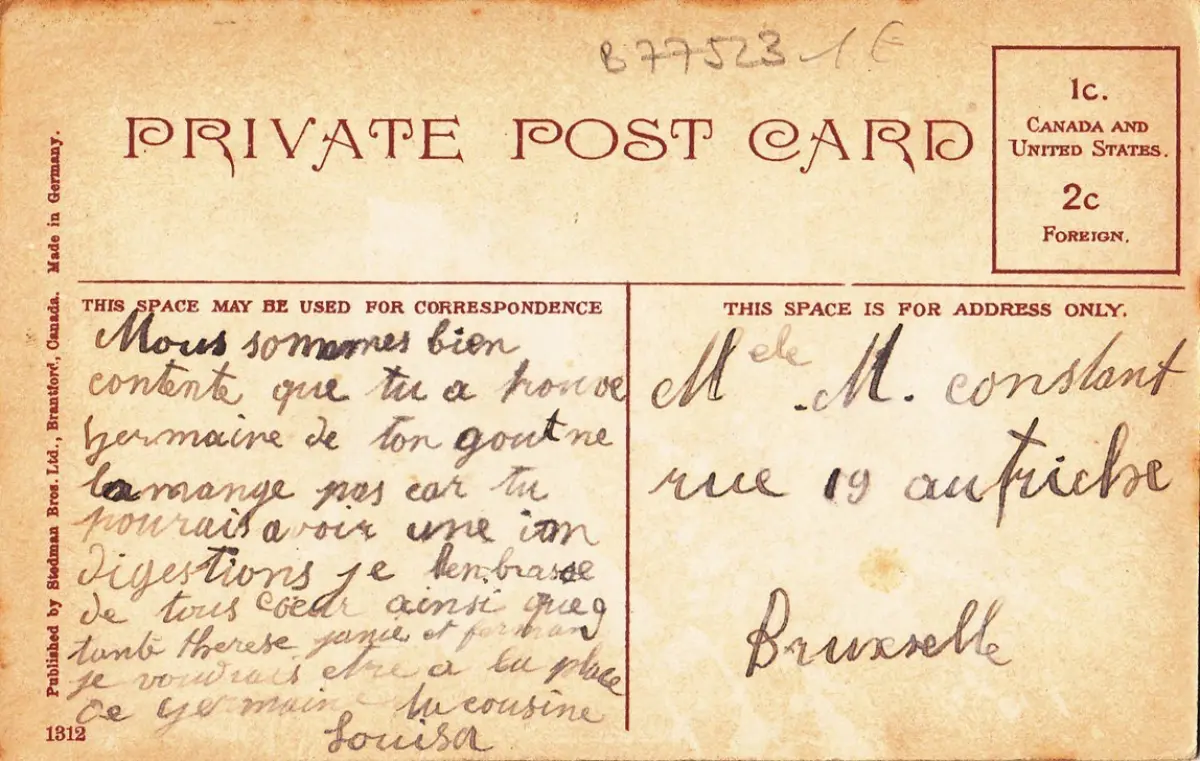 B77523 1 E
PRIVATE POST CARD
1c.
CANADA AND
UNITED STATES.
2c
FOREIGN.
Published by Stedman Bros. Ltd., Brantford, Canada. Made in Germany.
1312
THIS SPACE MAY BE USED FOR CORRESPONDENCE
Nous sommes bien
contente que tu a trouve
germaine de ton gout ne
la mange pas car tu
pourais avoir une in
digestions je
de tous cœur ainsi que
tante therese et
je voudrais etre a la place
de germaine ta cousine
Louisa
THIS SPACE IS FOR ADDRESS ONLY.
Mele M. constant
rue 19 autriche
Bruxselle